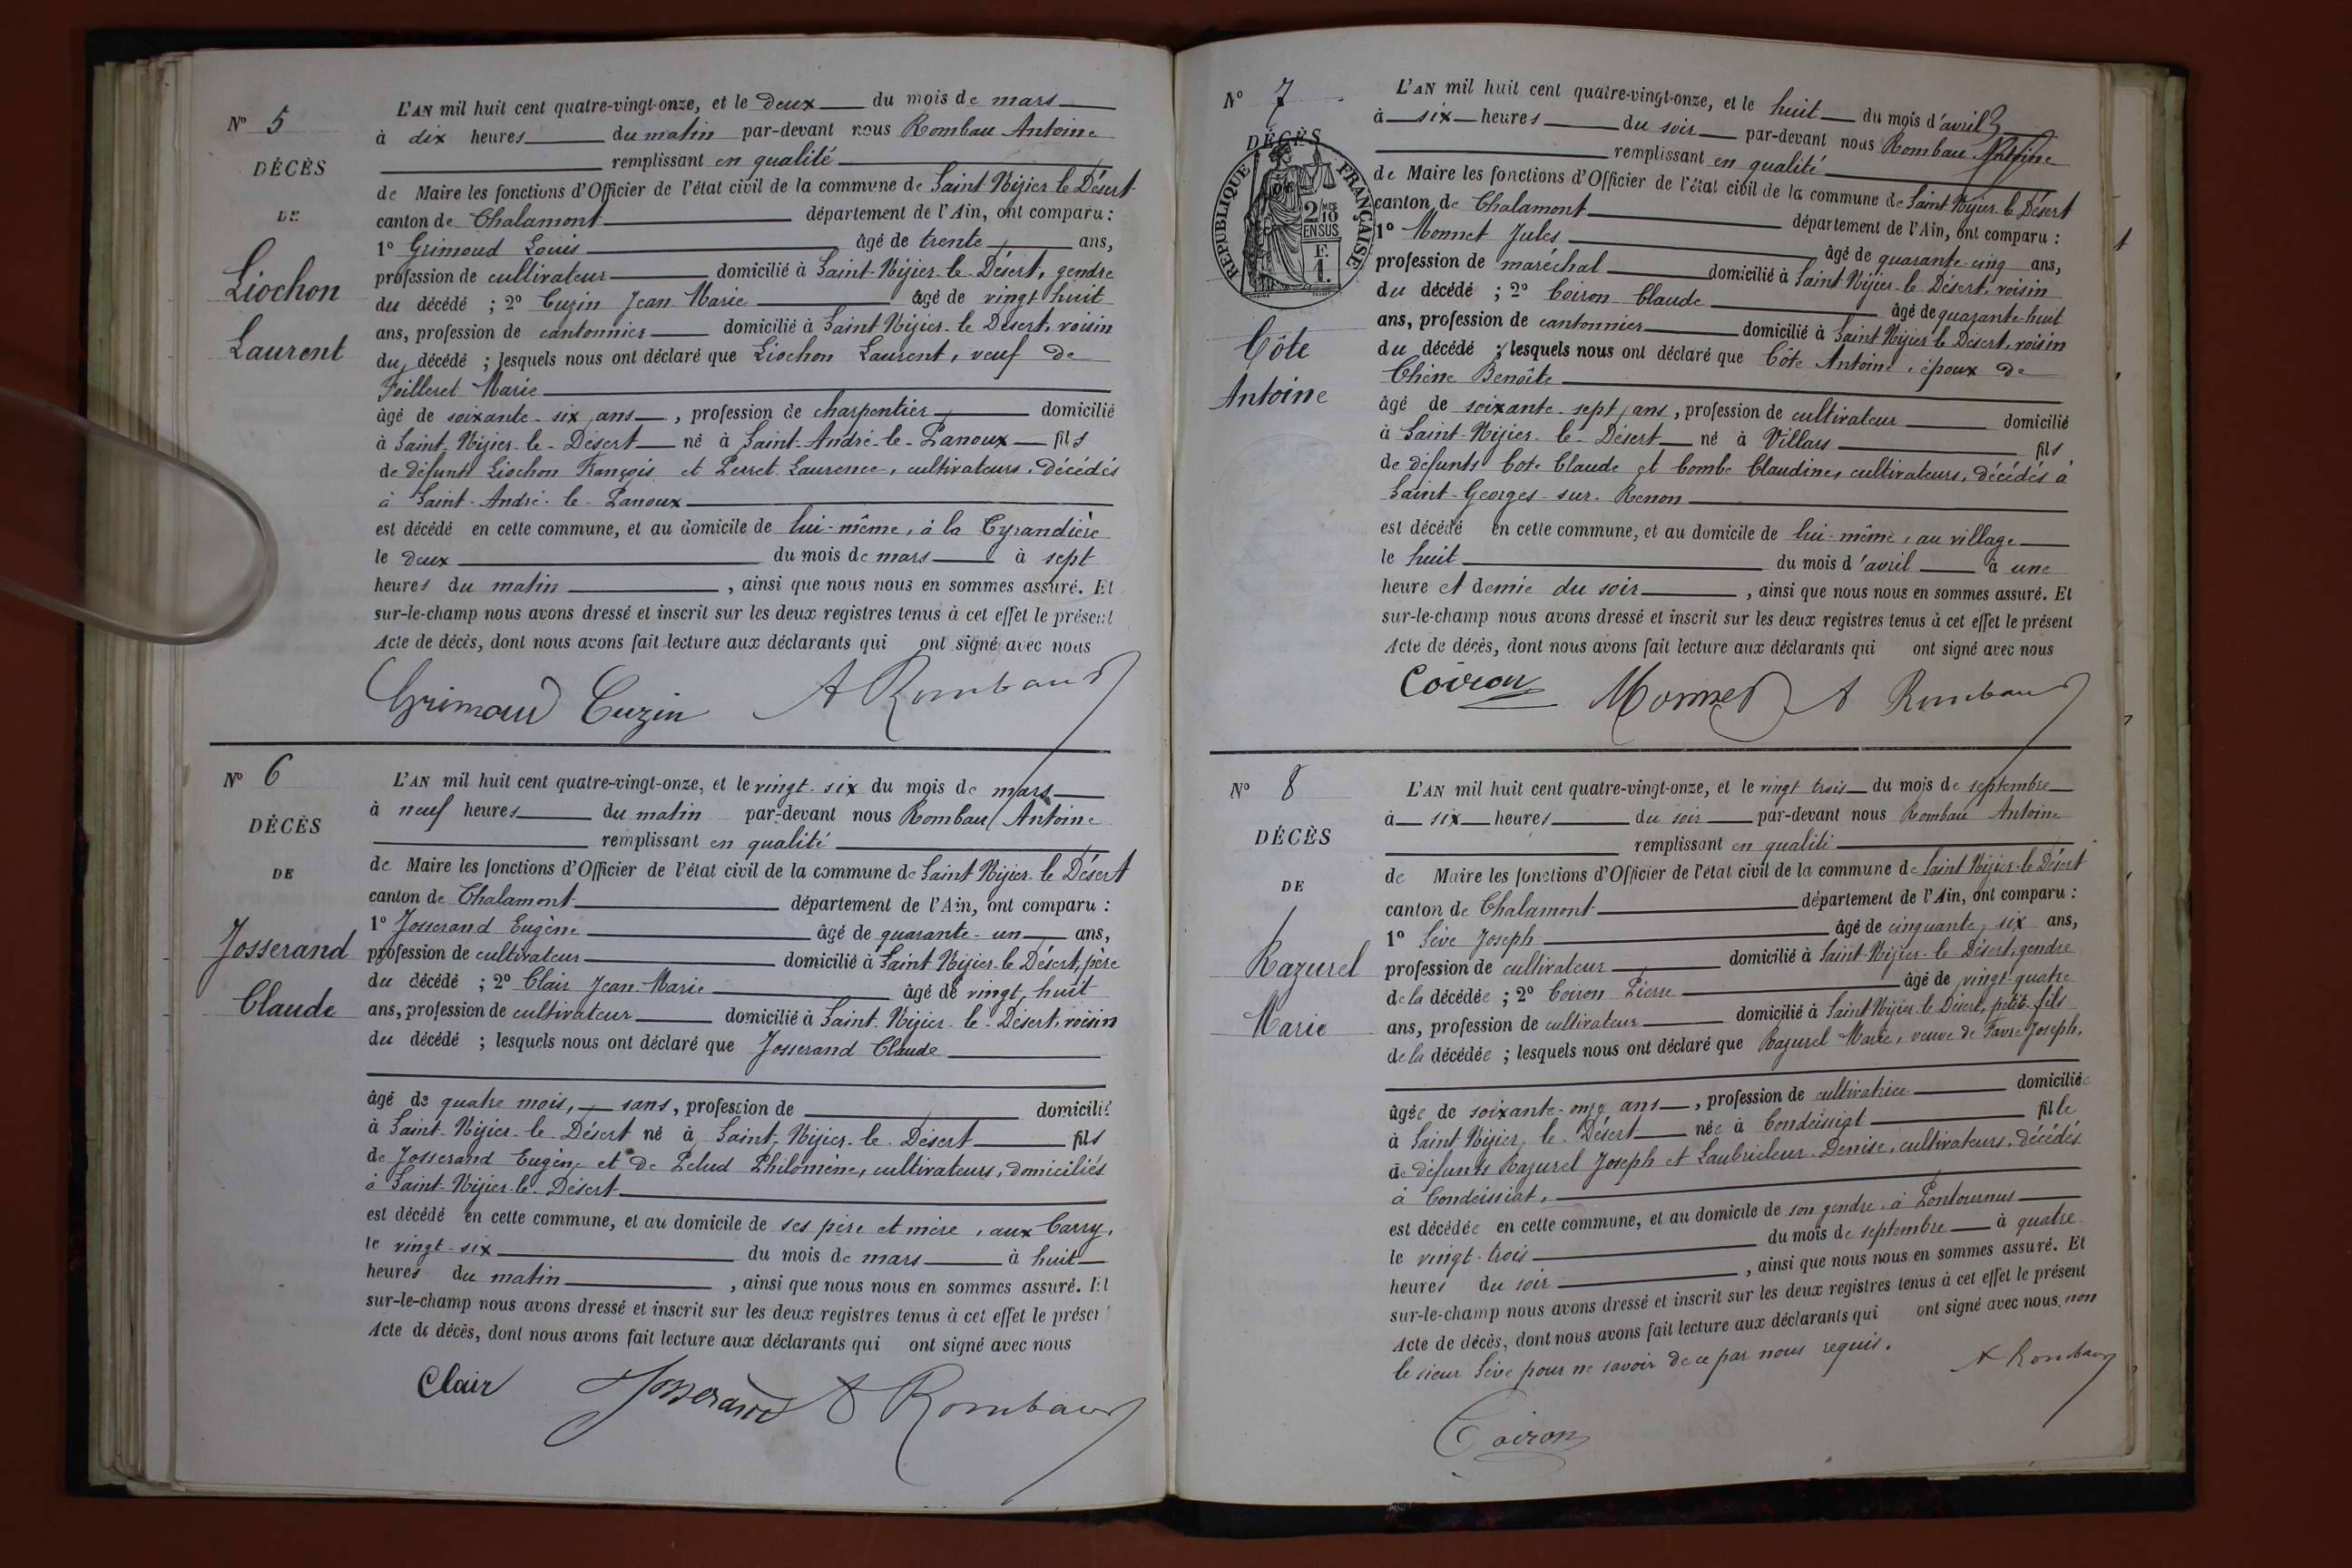 N° 5
DÉCÈS
DE
Liochon
Laurent
L'AN mil huit cent quatre-vingt-onze, et le deux du mois de mars
à dix heures du matin par-devant nous Rombau Antoine
remplissant en qualité
de Maire les fonctions d'Officier de l'état civil de la commune de Saint Nizier le Désert
canton de Chalamont département de l'Ain, ont comparu :
1° Grimoud Louis âgé de trente ans,
profession de cultivateur domicilié à Saint-Nizier-le-Désert, gendre
du décédé ; 2° Cuzin Jean Marie âgé de vingt huit
ans, profession de cantonnier domicilié à Saint Nizier-le Désert, voisin
du décédé ; lesquels nous ont déclaré que Liochon Laurent, veuf de
Foilleret Marie
âgé de soixante-six ans, profession de charpentier domicilié
à Saint-Nizier-le-Désert né à Saint-André-le-Panoux fils
de défunts Liochon François et Perret Laurence, cultivateurs, décédés
à Saint-André-le-Panoux
est décédé en cette commune, et au domicile de lui-même, à la Cyrandière
le deux du mois de mars à sept
heures du matin, ainsi que nous nous en sommes assuré. Et
sur-le-champ nous avons dressé et inscrit sur les deux registres tenus à cet effet le présent
Acte de décès, dont nous avons fait lecture aux déclarants qui ont signé avec nous
Grimoud Cuzin A Rombaud
N° 6
DÉCÈS
DE
Josserand
Claude
L'AN mil huit cent quatre-vingt-onze, et le vingt-six du mois de mars
à neuf heures du matin par-devant nous Rombau Antoine
remplissant en qualité
de Maire les fonctions d'Officier de l'état civil de la commune de Saint Nizier-le Désert
canton de Chalamont département de l'Ain, ont comparu :
1° Josserand Eugène âgé de quarante-un ans,
profession de cultivateur domicilié à Saint Nizier-le Désert, père
du décédé ; 2° Clair Jean-Marie âgé de vingt huit
ans, profession de cultivateur domicilié à Saint-Nizier-le-Désert, voisin
du décédé ; lesquels nous ont déclaré que Josserand Claude
âgé de quatre mois, sans, profession de domicilié
à Saint-Nizier-le-Désert né à Saint-Nizier-le-Désert fils
de Josserand Eugène et de Pelud Philomène, cultivateurs, domiciliés
à Saint-Nizier-le-Désert
est décédé en cette commune, et au domicile de ses père et mère, aux Carry,
le vingt-six du mois de mars à huit
heures du matin, ainsi que nous nous en sommes assuré. Et
sur-le-champ nous avons dressé et inscrit sur les deux registres tenus à cet effet le présen
Acte de décès, dont nous avons fait lecture aux déclarants qui ont signé avec nous
Clair Josserand A Rombaud
N° 7
DÉCÈS
DE
RÉPUBLIQUE FRANÇAISE
2/10 MES
EN SUS
F.
1.
Côte
Antoine
L'AN mil huit cent quatre-vingt-onze, et le huit du mois d'avril
à six heures du soir par-devant nous Rombau Antoine
remplissant en qualité
de Maire les fonctions d'Officier de l'état civil de la commune de Saint Nizier-le Désert
canton de Chalamont département de l'Ain, ont comparu :
1° Monnet Jules âgé de quarante-cinq ans,
profession de maréchal domicilié à Saint Nizier-le Désert, voisin
du décédé ; 2° Coiron Claude âgé de quarante-huit
ans, profession de cantonnier domicilié à Saint Nizier le Désert, voisin
du décédé ; lesquels nous ont déclaré que Côte Antoine, époux de
Chêne Benoîte
âgé de soixante-sept ans, profession de cultivateur domicilié
à Saint-Nizier-le-Désert né à Villars fils
de défunts Cote Claude et Combe Claudine, cultivateurs, décédés à
Saint-Georges-sur-Renon
est décédé en cette commune, et au domicile de lui-même, au village
le huit du mois d'avril à une
heure et demie du soir, ainsi que nous nous en sommes assuré. Et
sur-le-champ nous avons dressé et inscrit sur les deux registres tenus à cet effet le présent
Acte de décès, dont nous avons fait lecture aux déclarants qui ont signé avec nous
Coiron Monnet A Rombaud
N° 8
DÉCÈS
DE
Razurel
Marie
L'AN mil huit cent quatre-vingt-onze, et le vingt trois du mois de septembre
à six heures du soir par-devant nous Rombau Antoine
remplissant en qualité
de Maire les fonctions d'Officier de l'état civil de la commune de Saint Nizier-le Désert
canton de Chalamont département de l'Ain, ont comparu :
1° Sève Joseph âgé de cinquante six ans,
profession de cultivateur domicilié à Saint-Nizier-le-Désert, gendre
de la décédée ; 2° Coiron Pierre âgé de vingt-quatre
ans, profession de cultivateur domicilié à Saint Nizier-le Désert, petit-fils
de la décédée ; lesquels nous ont déclaré que Razurel Marie, veuve de Favre Joseph,
âgée de soixante-onze ans, profession de cultivatrice domiciliée
à Saint Nizier-le-Désert née à Condeissiat fille
de défunts Razurel Joseph et Laubricleur Denise, cultivateurs, décédés
à Condeissiat,
est décédée en cette commune, et au domicile de son gendre, à Pontournus
le vingt-trois du mois de septembre à quatre
heures du soir, ainsi que nous nous en sommes assuré. Et
sur-le-champ nous avons dressé et inscrit sur les deux registres tenus à cet effet le présent
Acte de décès, dont nous avons fait lecture aux déclarants qui ont signé avec nous, non
le sieur Sève pour ne savoir de ce par nous requis.
A Rombaud
Coiron